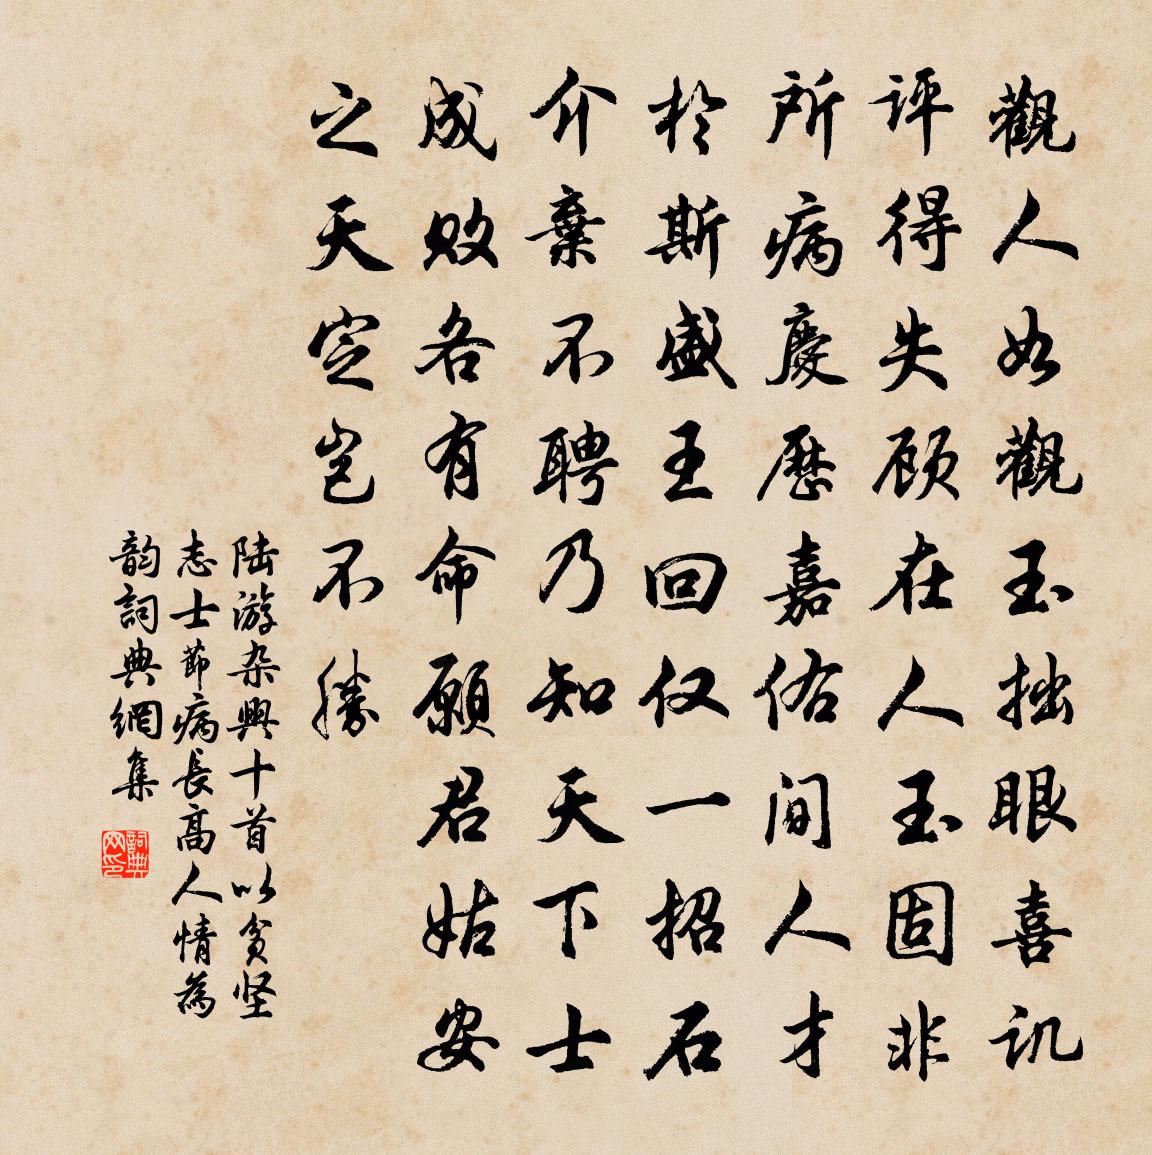 觀人如觀玉拙眼喜訊
評得失顾在人玉固非
所病慶歷嘉佑间人才
於斯盛王回仅一招石
介棄不聘乃知天下士
成敗各有命願君姑安
之天定岂不勝
陆游杂興十首以贫坚
志士節病長高人情為
韵詞典網集
詞典
网印